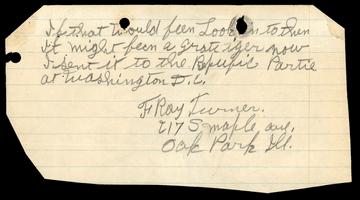 If that would feen Look in to then
It might feen a grate tiger now
I sent it to the Bpupic Partie
at Washington D.C.
F Ray Turner.
717 S. maple ave,
Oak Park Ill.